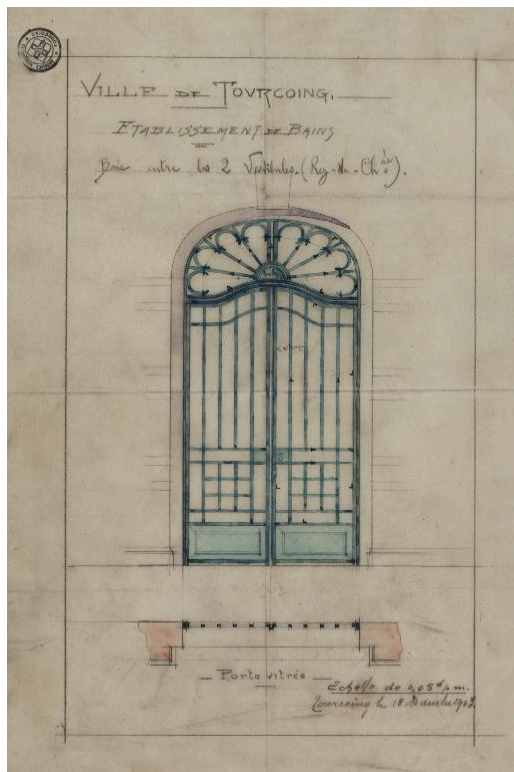 VILLE DE TOVRCOING,
ETABLISSEMENT DE BAINS
Baie entre les 2 Vestibules. (Rez-de-Chée).
Porte vitrée
Echelle de 0,05c p.m.
Tourcoing le 18 Décembre